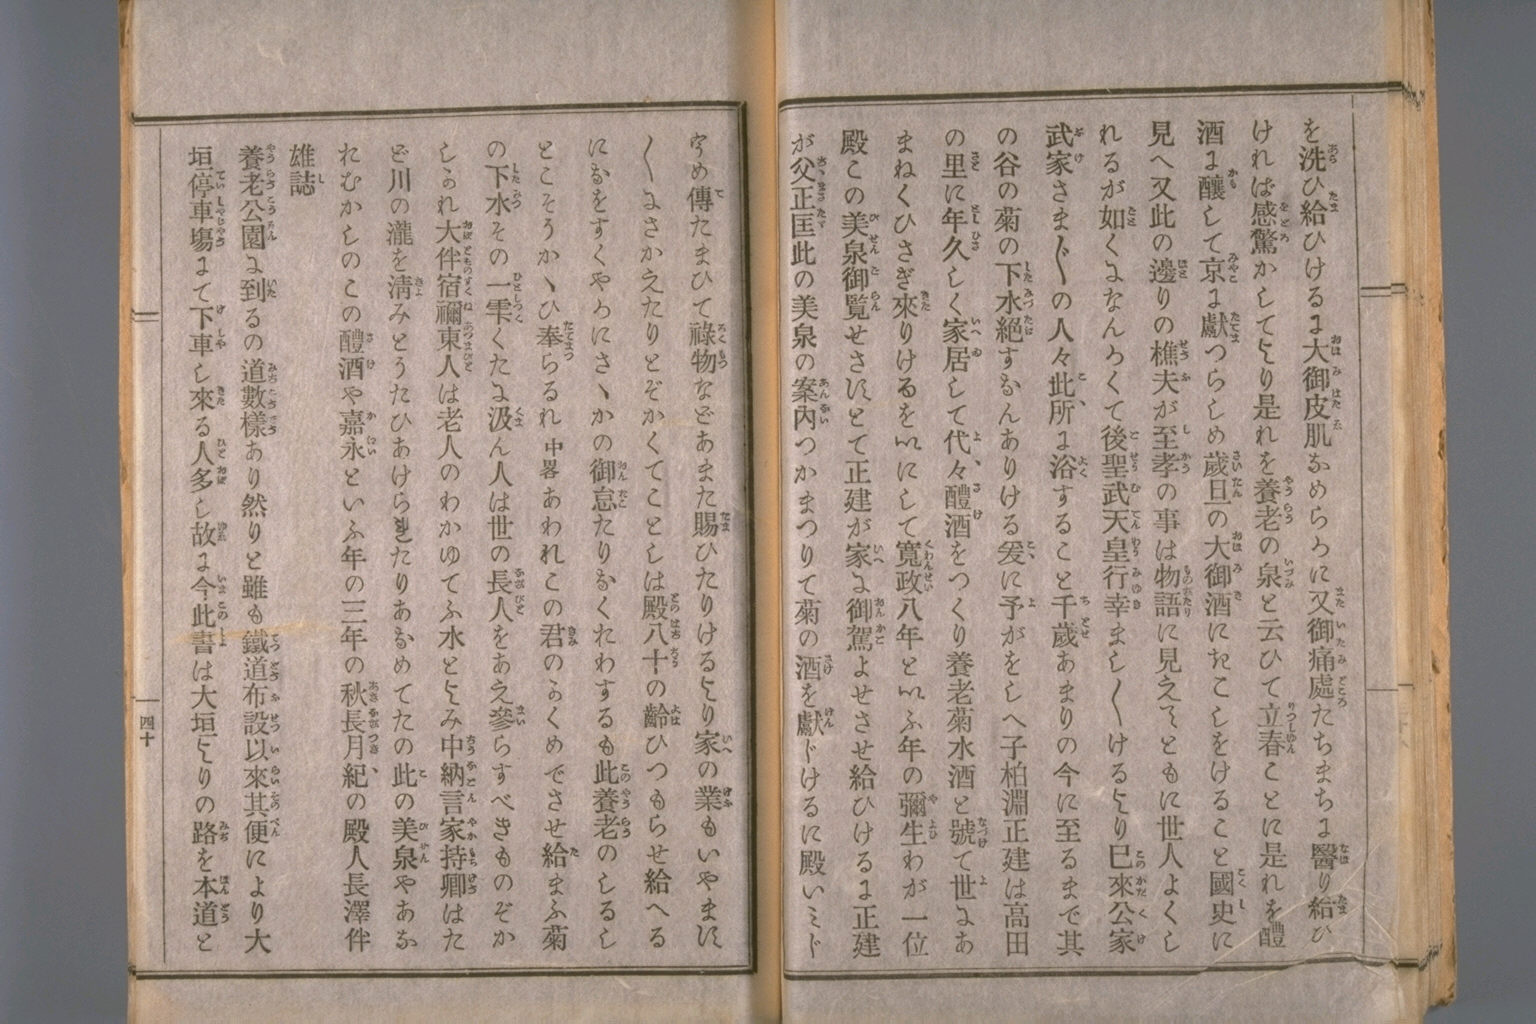 を洗ひ給ひけるに大御皮肌なめらかに又御痛處たちまちに醫り給ひ
ければ感驚かしてより是れを養老の泉と云ひて立春ことに是れを醴
酒に釀して京に獻つらしめ歲旦の大御酒にたこしをけること國史に
見へ又此の邊りの樵夫が至孝の事は物語に見えてともに世人よくし
れるが如くになんかくて後聖武天皇行幸まし〳〵けるより已來公家
武家さま〴〵の人々此所に浴すること千歲あまりの今に至るまで其
の谷の菊の下水絕すなんありける爰に予がをしへ子柏淵正建は高田
の里に年久しく家居して代々醴酒をつくり養老菊水酒と號て世にあ
まねくひさぎ來りけるをいにして寬政八年といふ年の彌生わが一位
殿この美泉御覽せさすとて正建が家に御駕よせさせ給ひけるに正建
が父正匡此の美泉の案內つかまつりて菊の酒を獻じけるに殿いミじ
うめ傳たまひて祿物などあまた賜ひたりけるより家の業もいやます
〳〵にさかえたりとぞかくてことしは殿八十の齡ひつもらせ給へる
になをすくやかにさゝかの御怠たりなくわするも此養老のしるし
とこそうかゝひ奉らるれ 中畧 あわれこの君のかくめでさせ給まふ菊
の下水その一雫くたに汲ん人は世の長人をあえ參らすべきものぞか
しかれ大伴宿禰東人は老人のわかゆてふ水とよみ中納言家持卿はた
ど川の瀧を清みとうたひあけられたりあなめてたの此の美泉やあな
れむかしのこの醴酒や嘉永といふ年の三年の秋長月紀の殿人長澤伴
雄誌
養老公園に到るの道數樣あり然りと雖も鐵道布設以來其便により大
垣停車塲にて下車し來る人多し故に今此書は大垣よりの路を本道と
四十